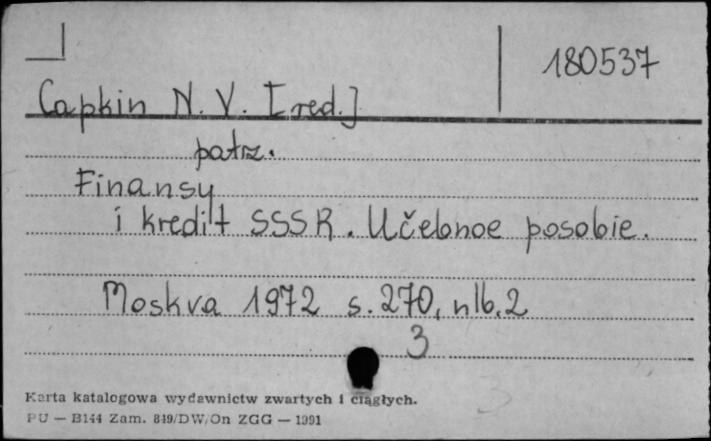 180537
Capkin N. V. [red.]
patrz.
Finansy
i kredit SSSR. Učebnoe posobie.
Moskva 1972 s. 270, nlb. 2
3
Karta katalogowa wydawnictw zwartych i ciągłych.
PU — B144 Zam. 849/DW/On ZGG — 1991